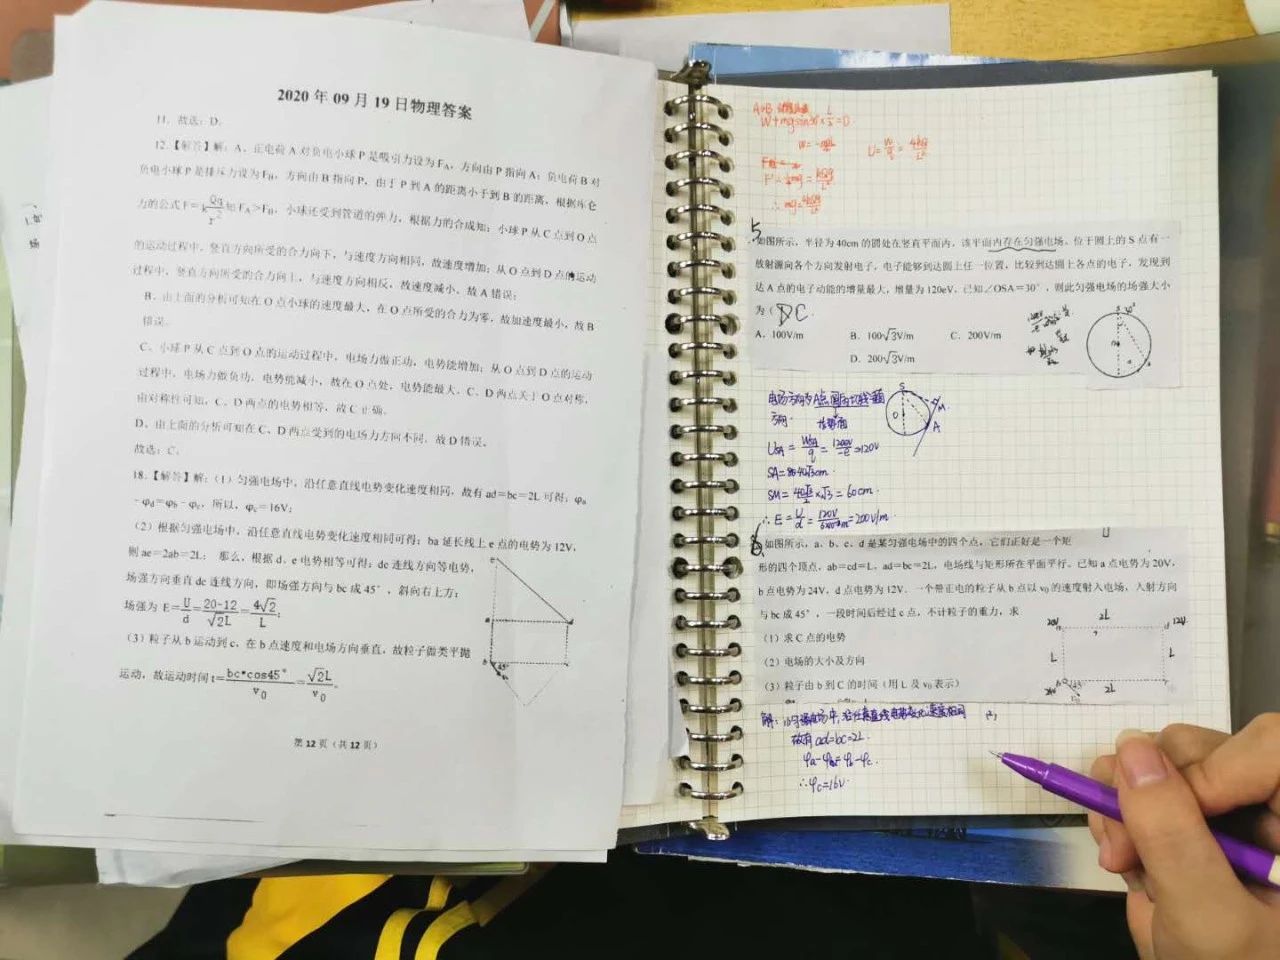 2020 年 09 月 19 日物理答案
11. 故选: D.
12.【解答】解: A、正电荷 A 对负电小球 P 是吸引力设为 FA, 方向由 P 指向 A; 负电荷 B 对
负电小球 P 是排斥力设为 FB, 方向由 B 指向 P, 由于 P 到 A 的距离小于到 B 的距离, 根据库仑
力的公式 F=k Qq/r² 知 FA>FB, 小球还受到管道的弹力, 根据力的合成知: 小球 P 从 C 点到 O 点
的运动过程中, 竖直方向所受的合力向下, 与速度方向相同, 故速度增加; 从 O 点到 D 点的运动
过程中, 竖直方向所受的合力向上, 与速度方向相反, 故速度减小, 故 A 错误;
B、由上面的分析可知在 O 点小球的速度最大, 在 O 点所受的合力为零, 故加速度最小, 故 B
错误.
C、小球 P 从 C 点到 O 点的运动过程中, 电场力做正功, 电势能增加; 从 O 点到 D 点的运动
过程中, 电场力做负功, 电势能减小, 故在 O 点处, 电势能最大, C、D 两点关于 O 点对称,
由对称性可知, C、D 两点的电势相等, 故 C 正确.
D、由上面的分析可知在 C、D 两点受到的电场力方向不同, 故 D 错误.
故选: C.
18.【解答】解: (1) 匀强电场中, 沿任意直线电势变化速度相同, 故有 ad=bc=2L 可得: φa
-φd=φb-φc, 所以, φc=16V;
(2) 根据匀强电场中, 沿任意直线电势变化速度相同可得: ba 延长线上 e 点的电势为 12V,
则 ae=2ab=2L; 那么, 根据 d、e 电势相等可得: de 连线方向等电势,
场强方向垂直 de 连线方向, 即场强方向与 bc 成 45°, 斜向右上方;
场强为 E=U/d=20-12/√2L=4√2/L;
(3) 粒子从 b 运动到 c, 在 b 点速度和电场方向垂直, 故粒子做类平抛
运动, 故运动时间 t=bc•cos45°/v0=√2L/v0.
第 12 页 (共 12 页)
A→B
W+mgsin30°×L/2=0
U=W/q=4kQ/L²
∴mg=4kQq/L²
5.
如图所示, 半径为 40cm 的圆处在竖直平面内, 该平面内存在匀强电场, 位于圆上的 S 点有一
放射源向各个方向发射电子, 电子能够到达圆上任一位置, 比较到达圆上各点的电子, 发现到
达 A 点的电子动能的增量最大, 增量为 120eV, 已知∠OSA=30°, 则此匀强电场的场强大小
为 ( C.
A. 100V/m
B. 100√3V/m
C. 200V/m
D. 200√3V/m
S 30°
A
S
O
M
A
USA=WSA/q=120eV/-e=120V
SA=40√3cm.
SM=40√3/2×√3=60cm.
∴E=U/d=200V/m.
如图所示, a、b、c、d 是某匀强电场中的四个点, 它们正好是一个矩
形的四个顶点, ab=cd=L, ad=bc=2L, 电场线与矩形所在平面平行. 已知 a 点电势为 20V,
b 点电势为 24V, d 点电势为 12V. 一个带正电的粒子从 b 点以 v0 的速度射入电场, 入射方向
与 bc 成 45°, 一段时间后经过 c 点, 不计粒子的重力, 求
(1) 求 C 点的电势
(2) 电场的大小及方向
(3) 粒子由 b 到 C 的时间 (用 L 及 v0 表示)
20V
2L
d 12V
L
L
24V
b
45°
2L
解: (1)匀强电场中, 沿任意直线电势变化速度相同
故有 ad=bc=2L.
φa-φd=φb-φc.
∴φc=16V.